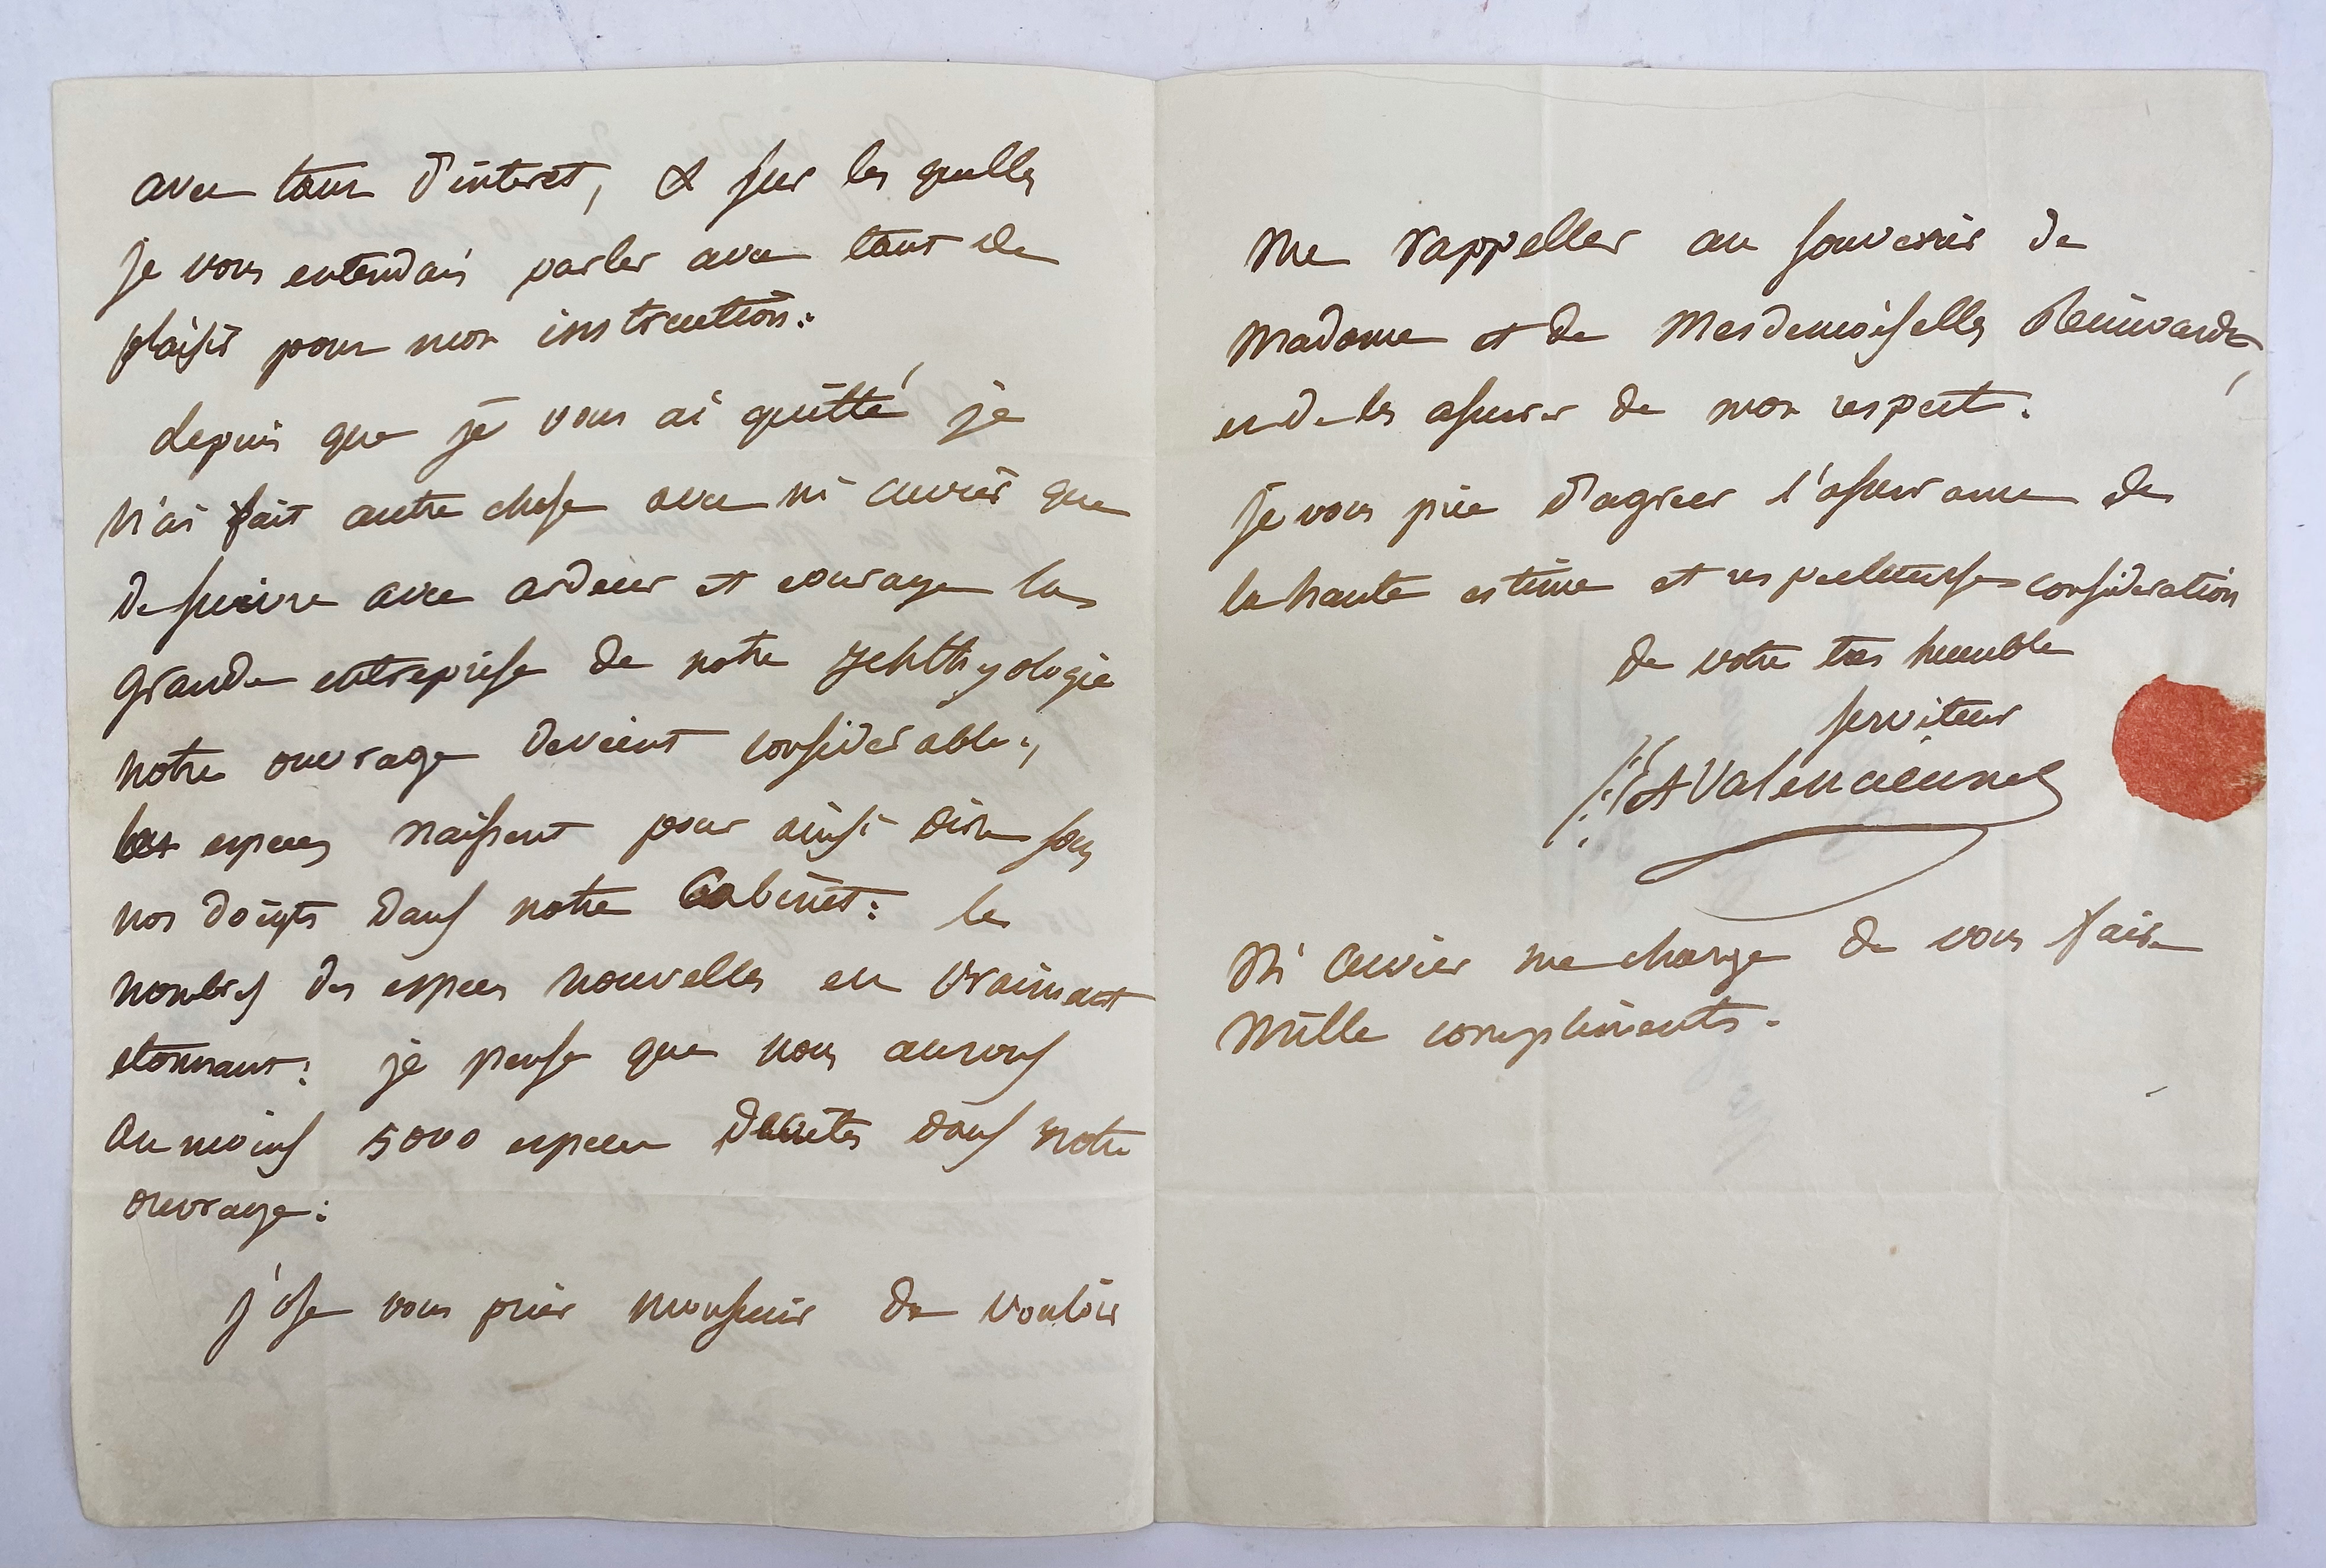 avec tant d'interet, & sur les quelles
je vous entendais parler avec tant de
plaisir pour mon instruction.
depuis que je vous ai quitté je
n'ai fait autre chose avec Mr Cuvier que
de suivre avec ardeur et courage la
grande entreprise de notre Ychthyologie
notre ouvrage devient considerable,
les especes naissent pour ainsi dire sous
nos doigts dans notre Cabinet: le
nombre des especes nouvelles est vraiment
etonnant: je pense que nous aurons
au moins 5000 especes decrites dans notre
ouvrage:
j'ose vous prier monsieur de vouloir
me rappeller au souvenir de
Madame et de Mesdemoiselles Reinwardt,
et de les assurer de mon respect.
je vous prie d'agreer l'assurance de
la haute estime et respectueuse consideration
de votre tres humble
serviteur
A Valenciennes
Mr Cuvier me charge de vous faire
mille compliments.